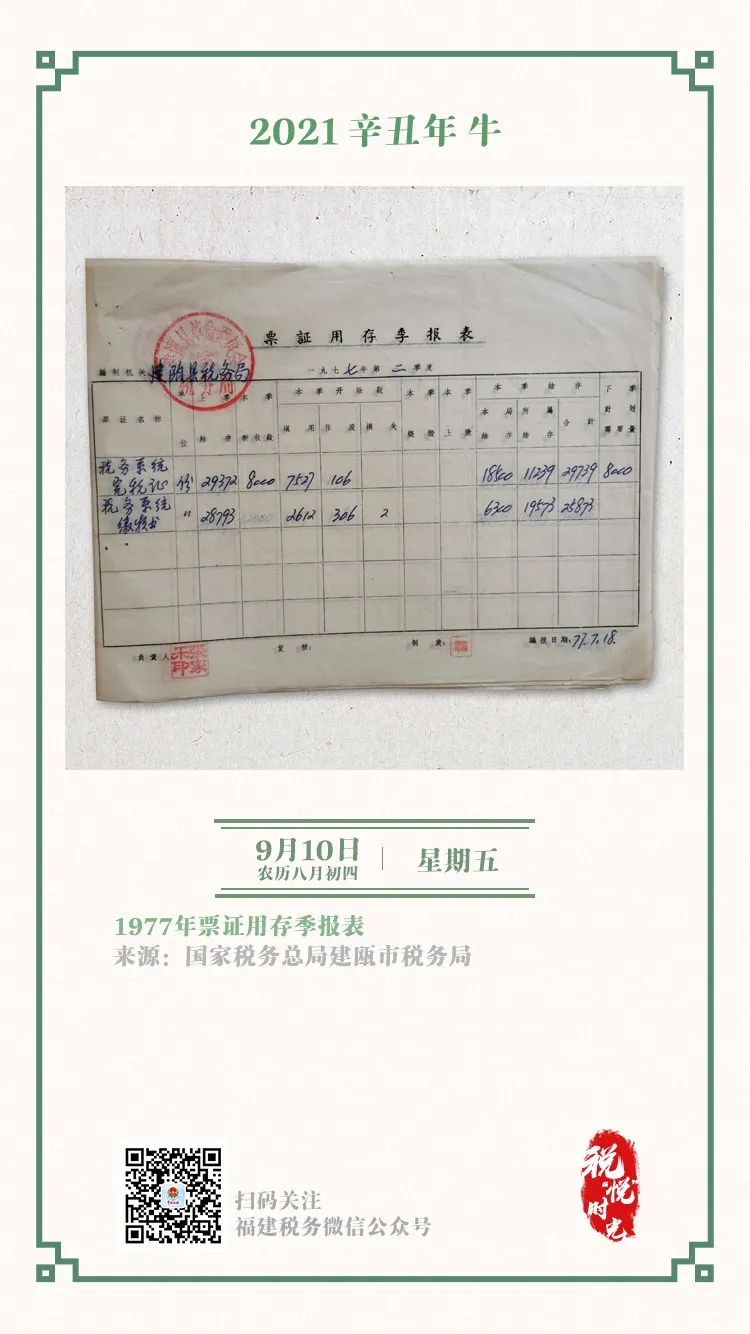 2021 辛丑年 牛
票証用存季报表
编制机关
建瓯县税务局
一九七七年第二季度
票证名称
单位
上季结存
本季新收数
本季开除数
填用
作废
损失
本季烧毁
本季上缴
本季结存
本局结存
所属结存
合计
下季计划需要量
税务系统完税证 份 29372 8000 7527 106 18500 11239 29739 8000
税务系统缴款书 〃 28793 2612 306 2 6300 19573 25873
负责人
张家禾印
复核:
制表:
编报日期: 77.7.18.
9月10日
农历八月初四
星期五
1977年票证用存季报表
来源：国家税务总局建瓯市税务局
扫码关注
福建税务微信公众号
税
“悦”
时光